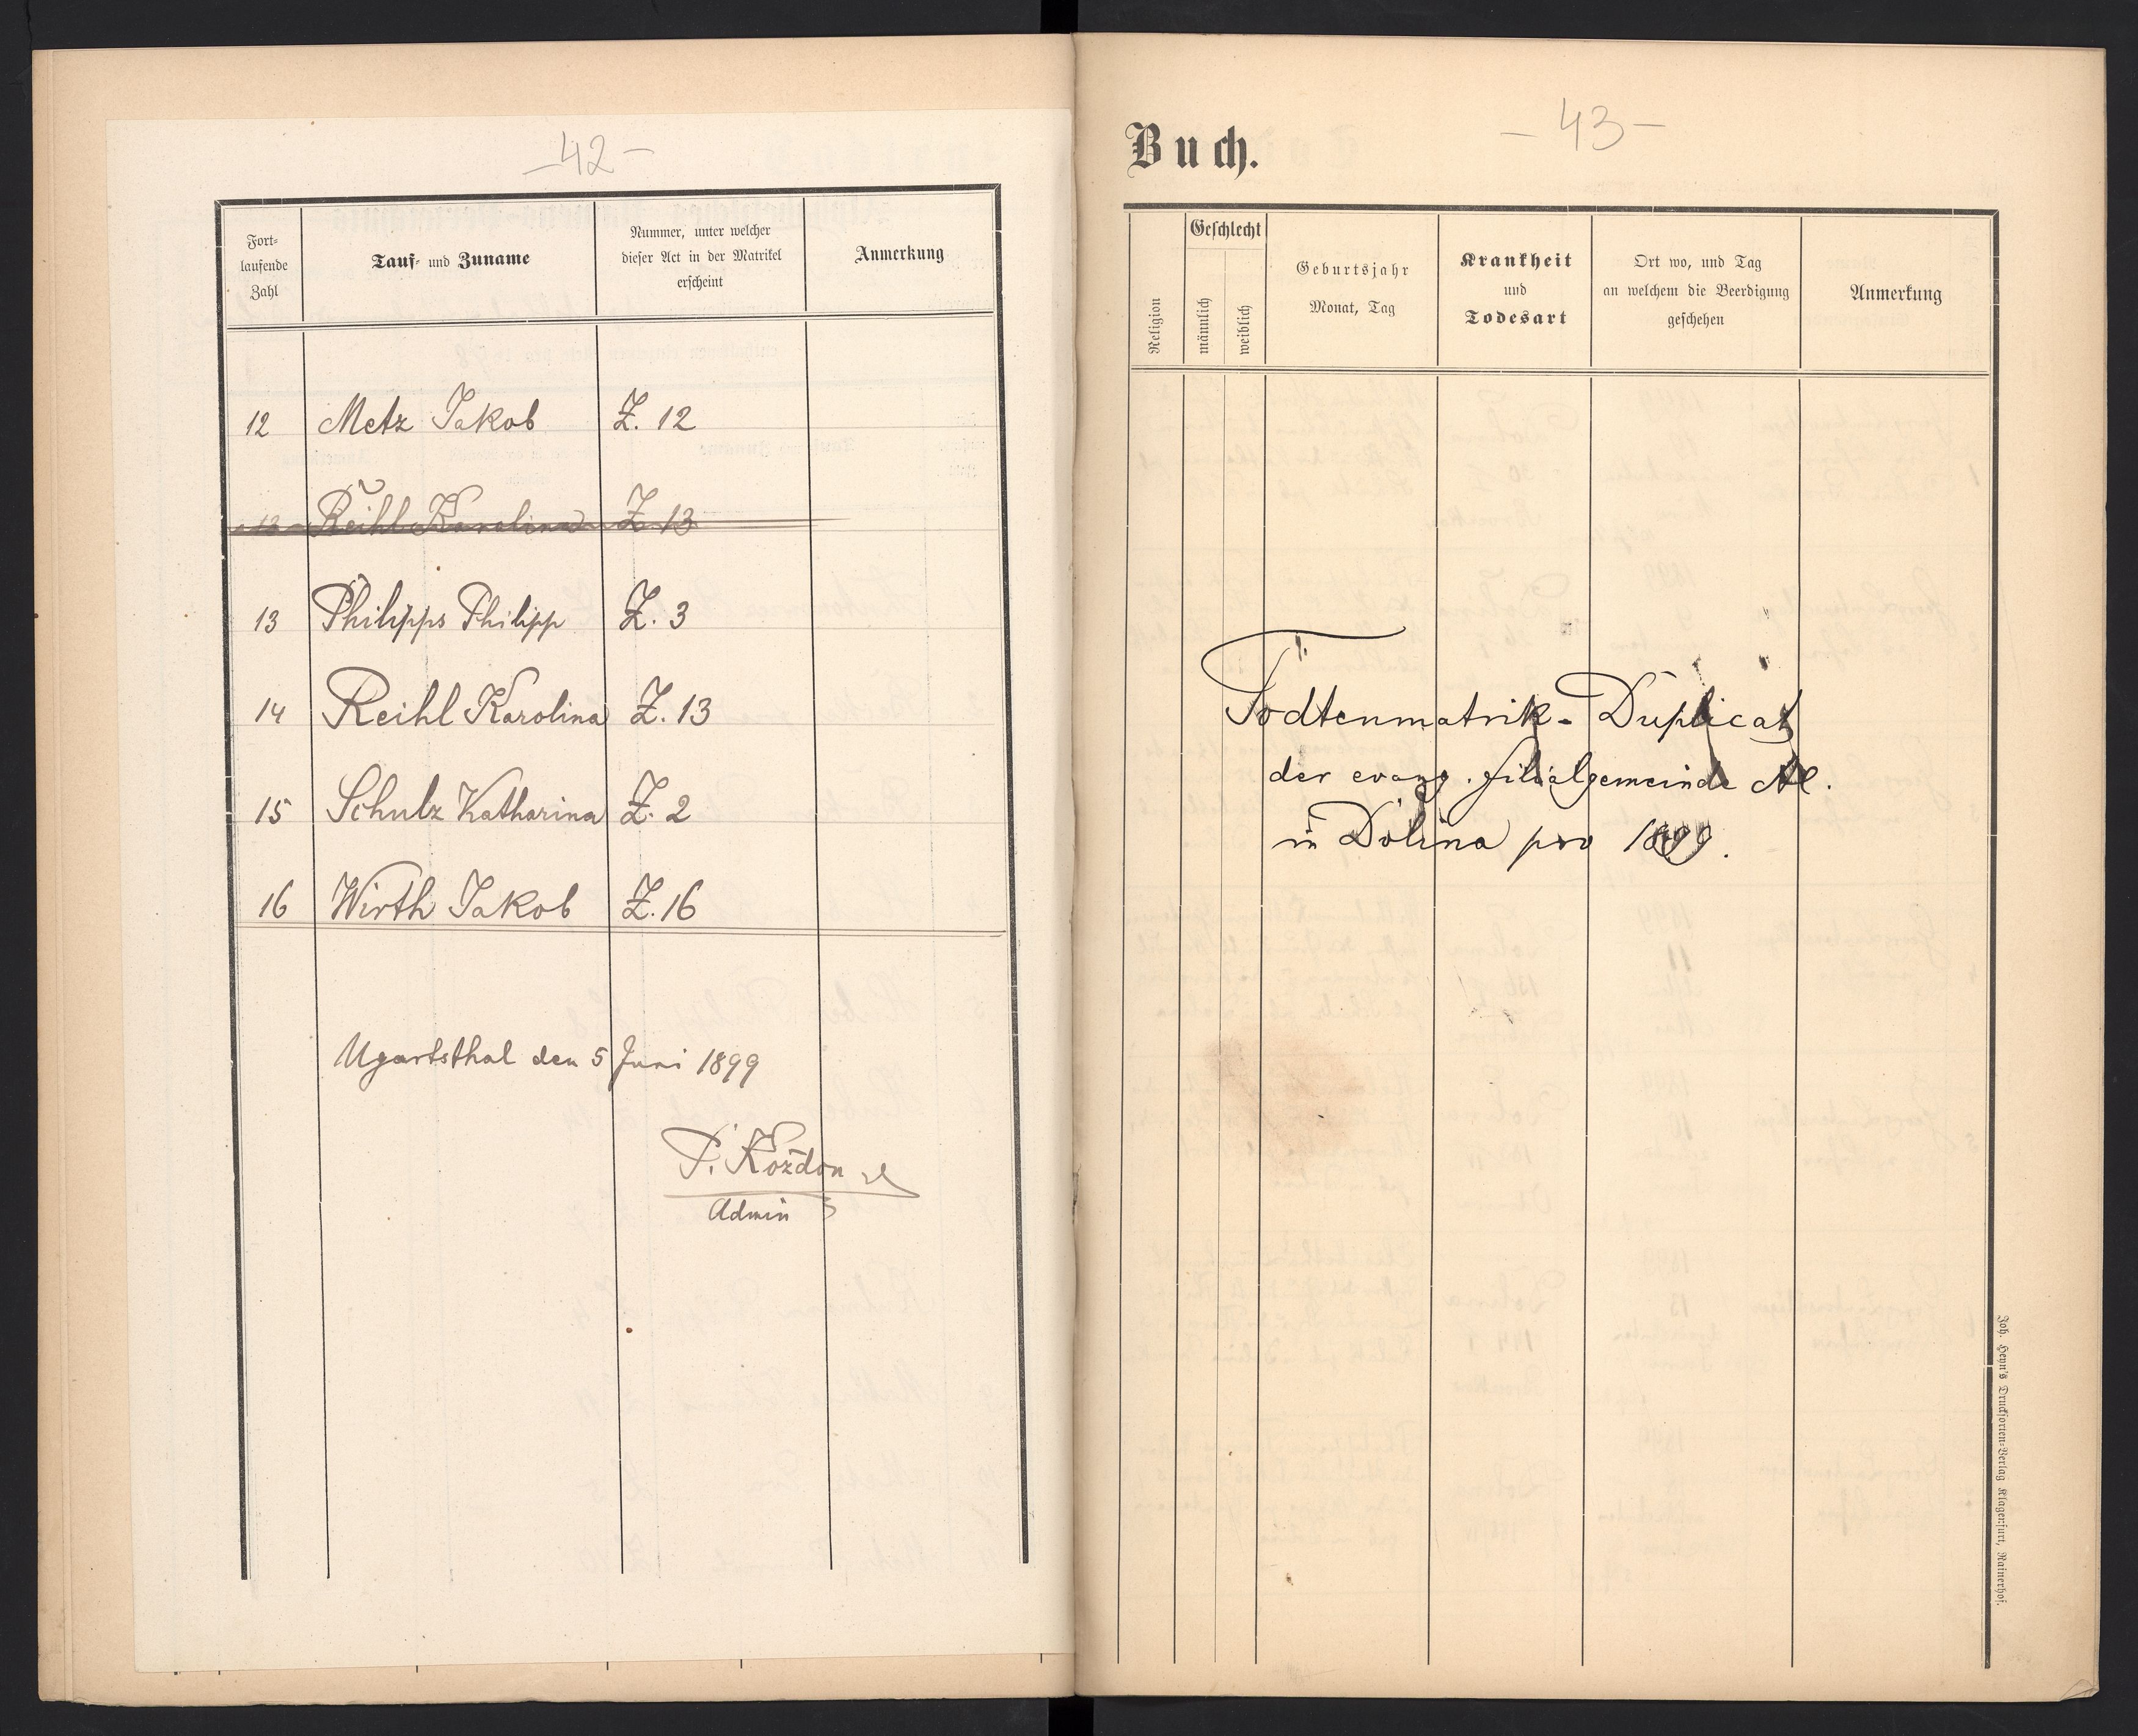 - 42 -
Fort-
laufende
Zahl
Tauf- und Zuname
Nummer, unter welcher
dieser Act in der Matrikel
erscheint
Anmerkung
12 Metz Jakob Z. 12
13 Reihl Karolina Z 13
13 Philipps Philipp Z. 3
14 Reihl Karolina Z. 13
15 Schulz Katharina Z. 2
16 Wirth Jakob Z. 16
Ugartsthal den 5 Juni 1899
P. Kożdon
Admin
- 43 -
Buch.
Religion
Geschlecht
männlich
weiblich
Geburtsjahr
Monat, Tag
Krankheit
und
Todesart
Ort wo, und Tag
an welchem die Beerdigung
geschehen
Anmerkung
Todtenmatrik-Duplicat
der evang. Filialgemeinde AC.
in Dolina pro 1899.
Joh. Heyn's Drucksorten-Verlag Klagenfurt, Rainerhof.